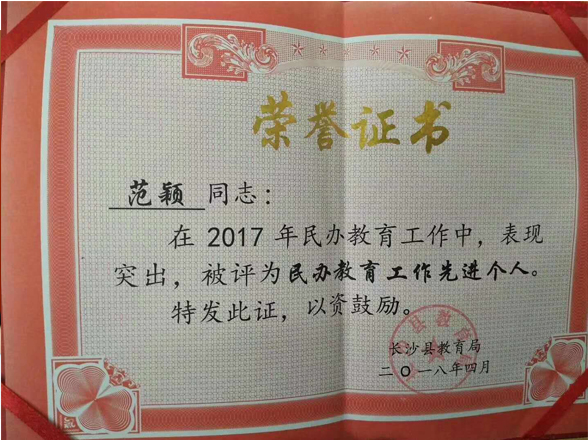 荣誉证书
范颖 同志：
在 2017 年民办教育工作中，表现
突出，被评为民办教育工作先进个人。
特发此证，以资鼓励。
长沙县教育局
二〇一八年四月